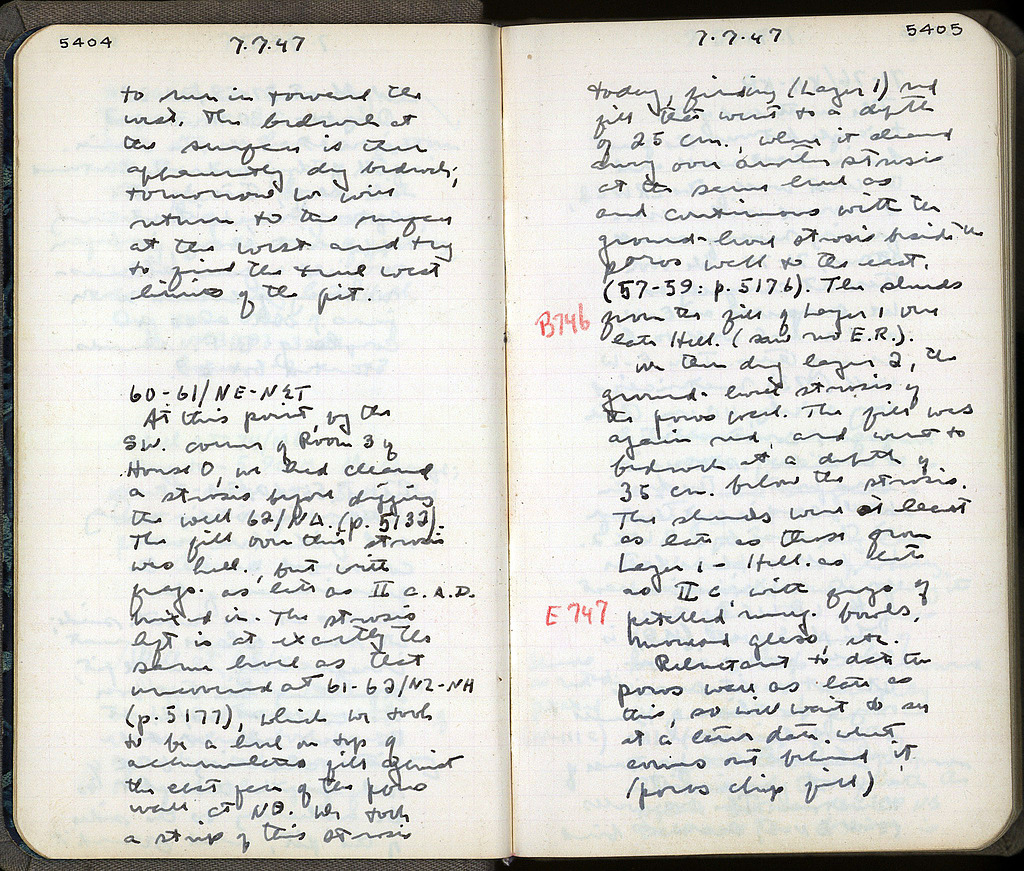 5404
7.7.47
to run in toward the
west. The bedrock at
the surface is then
apparently dry bedrock;
tomorrow we will
return to the surface
at the west and try
to find the true west
limits of the pit.
60-61/NE-NΣT
At this point, by the
SW. corner of Room 3 of
House O, we had cleaned
a strosis before digging
the well 62/NΔ. (p. 5132).
The fill over this strosis
was hell., but with
frags. as late as II c. A.D.
mixed in. The strosis
left is at exactly the
same level as that
uncovered at 61-62/NZ-NH
(p. 5177), which we took
to be a level on top of
accumulated fill against
the east face of the poros
wall at NΘ. We took
a strip of this strosis
7.7.47
5405
today, finding (Layer 1) red
fill that went to a depth
of 25 cm., when it cleaned
away over another strosis
at the same level as
and continuous with the
ground-level strosis beside the
poros wall to the east.
(57-59: p. 5176). The sherds
B746
from the fill of Layer 1 were
late Hell. (saw no E.R.).
We then dug layer 2, the
ground-level strosis of
the poros wall. The fill was
again red, and went to
bedrock at a depth of
35 cm. below the strosis.
The sherds were at least
as late as those from
Layer 1 - Hell. as late
as II c with frags of
E 747
petelled mug. bowls,
glass, etc.
Reluctant to date the
poros wall as late as
this, so will wait to see
at a later date what
comes out behind it
(poros chip fill)